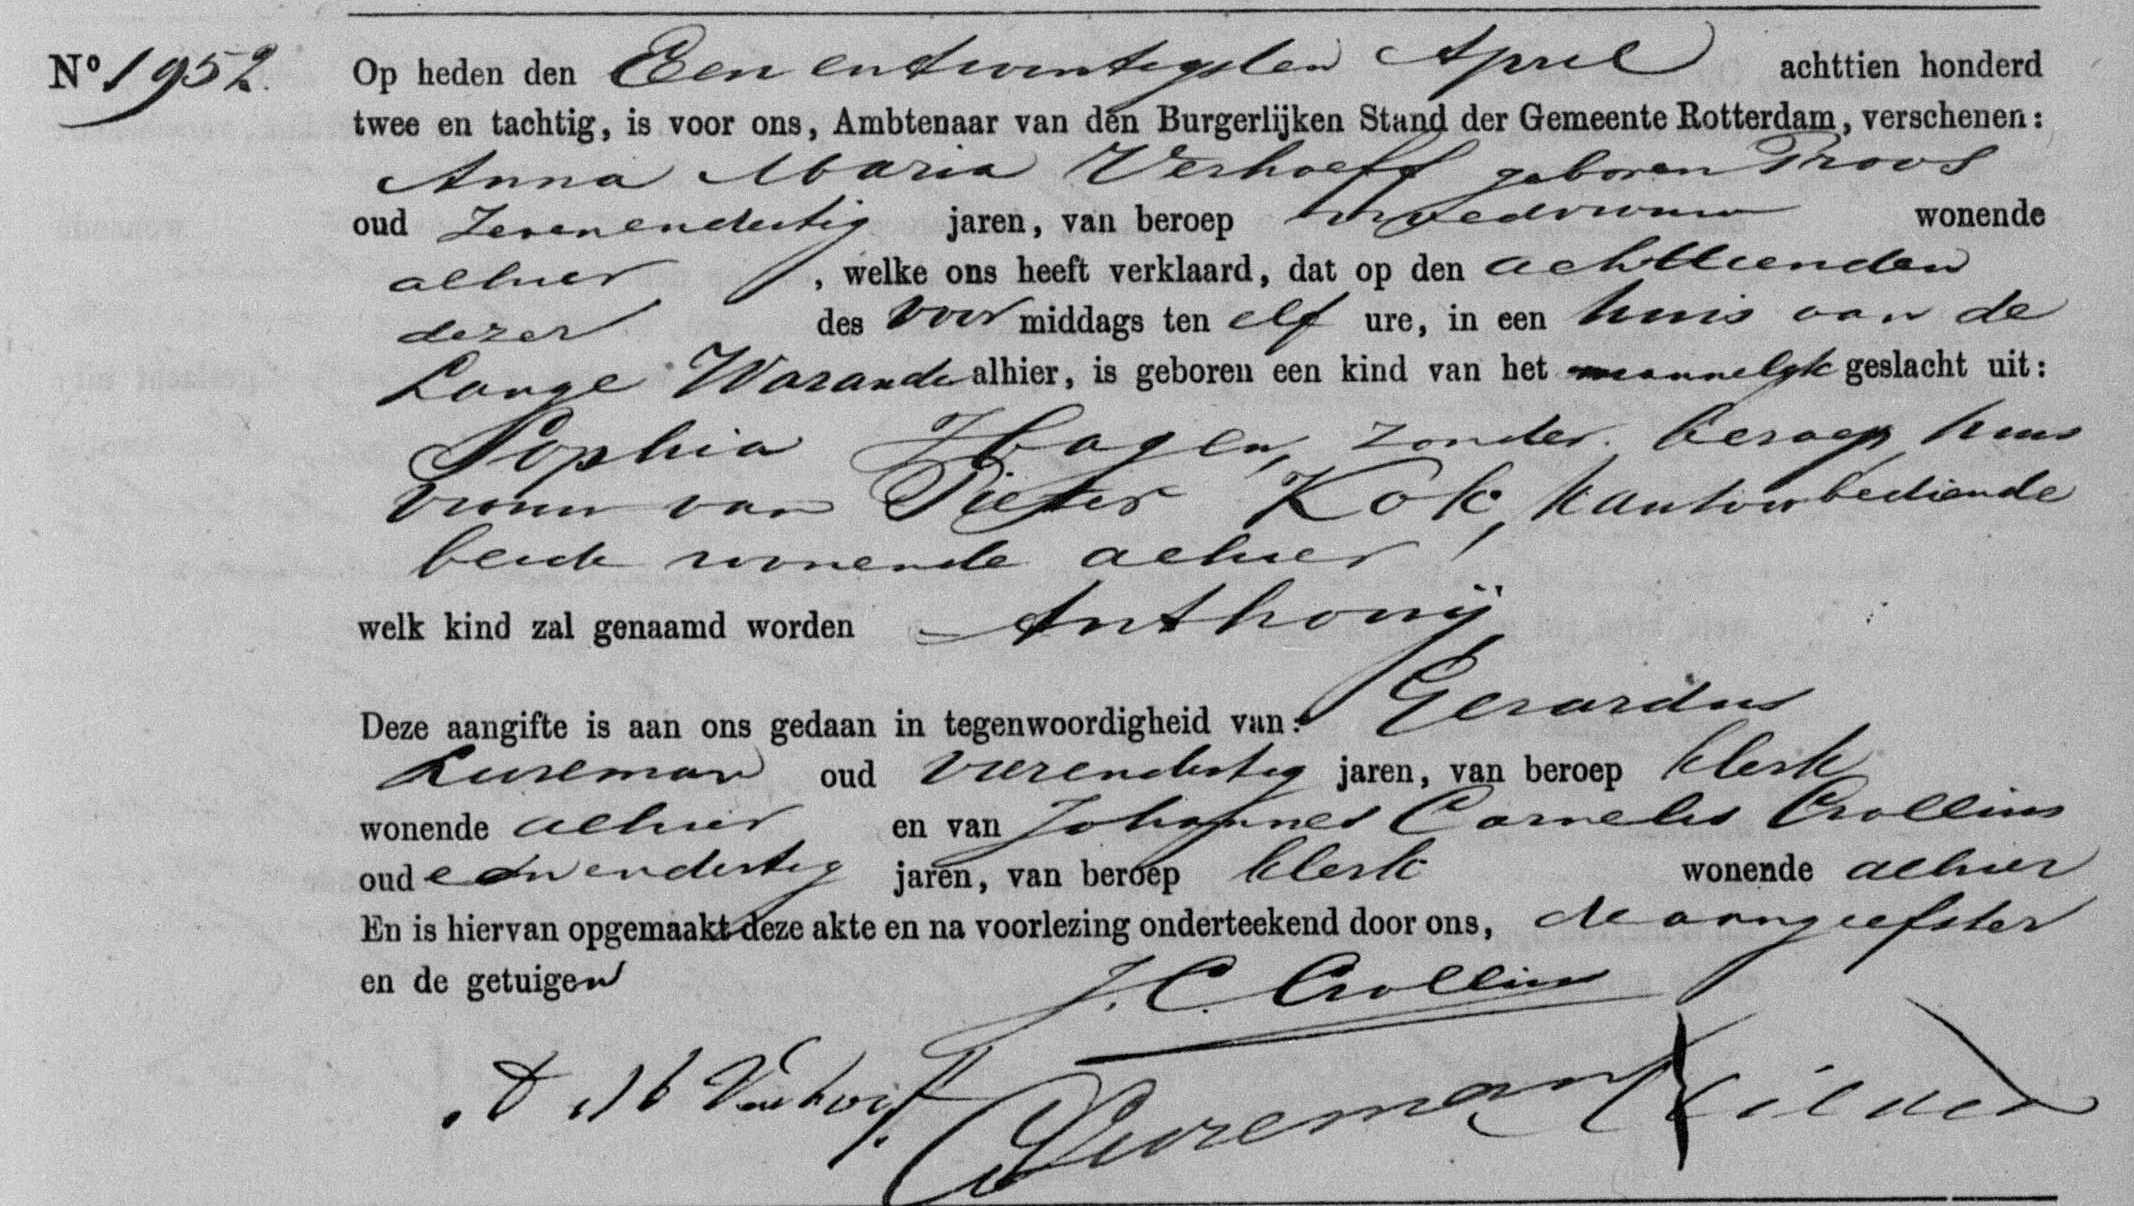 No 1952. Op heden den Een en twintigsten April achttien honderd
twee en tachtig, is voor ons, Ambtenaar van den Burgerlijken Stand der Gemeente Rotterdam, verschenen:
Anna Maria Verhoeff geboren Troos
oud Zevenendertig jaren, van beroep vroedvrouw wonende
alhier, welke ons heeft verklaard, dat op den achttienden
dezer des voormiddags ten elf ure, in een huis aan de
Lange Warande alhier, is geboren een kind van het mannelijk geslacht uit:
Sophia Hagen, zonder beroep, huis
vrouw van Pieter Kok, kantoorbediende
beide wonende alhier
welk kind zal genaamd worden Anthonij
Deze aangifte is aan ons gedaan in tegenwoordigheid van: Gerardus
Lureman oud vierendertig jaren, van beroep klerk
wonende alhier en van Johannes Cornelis Crollius
oud eenendertig jaren, van beroep klerk wonende alhier
En is hiervan opgemaakt deze akte en na voorlezing onderteekend door ons, de aangeefster
en de getuigen
J. C. Crollius
A M Verhoeff
Lureman